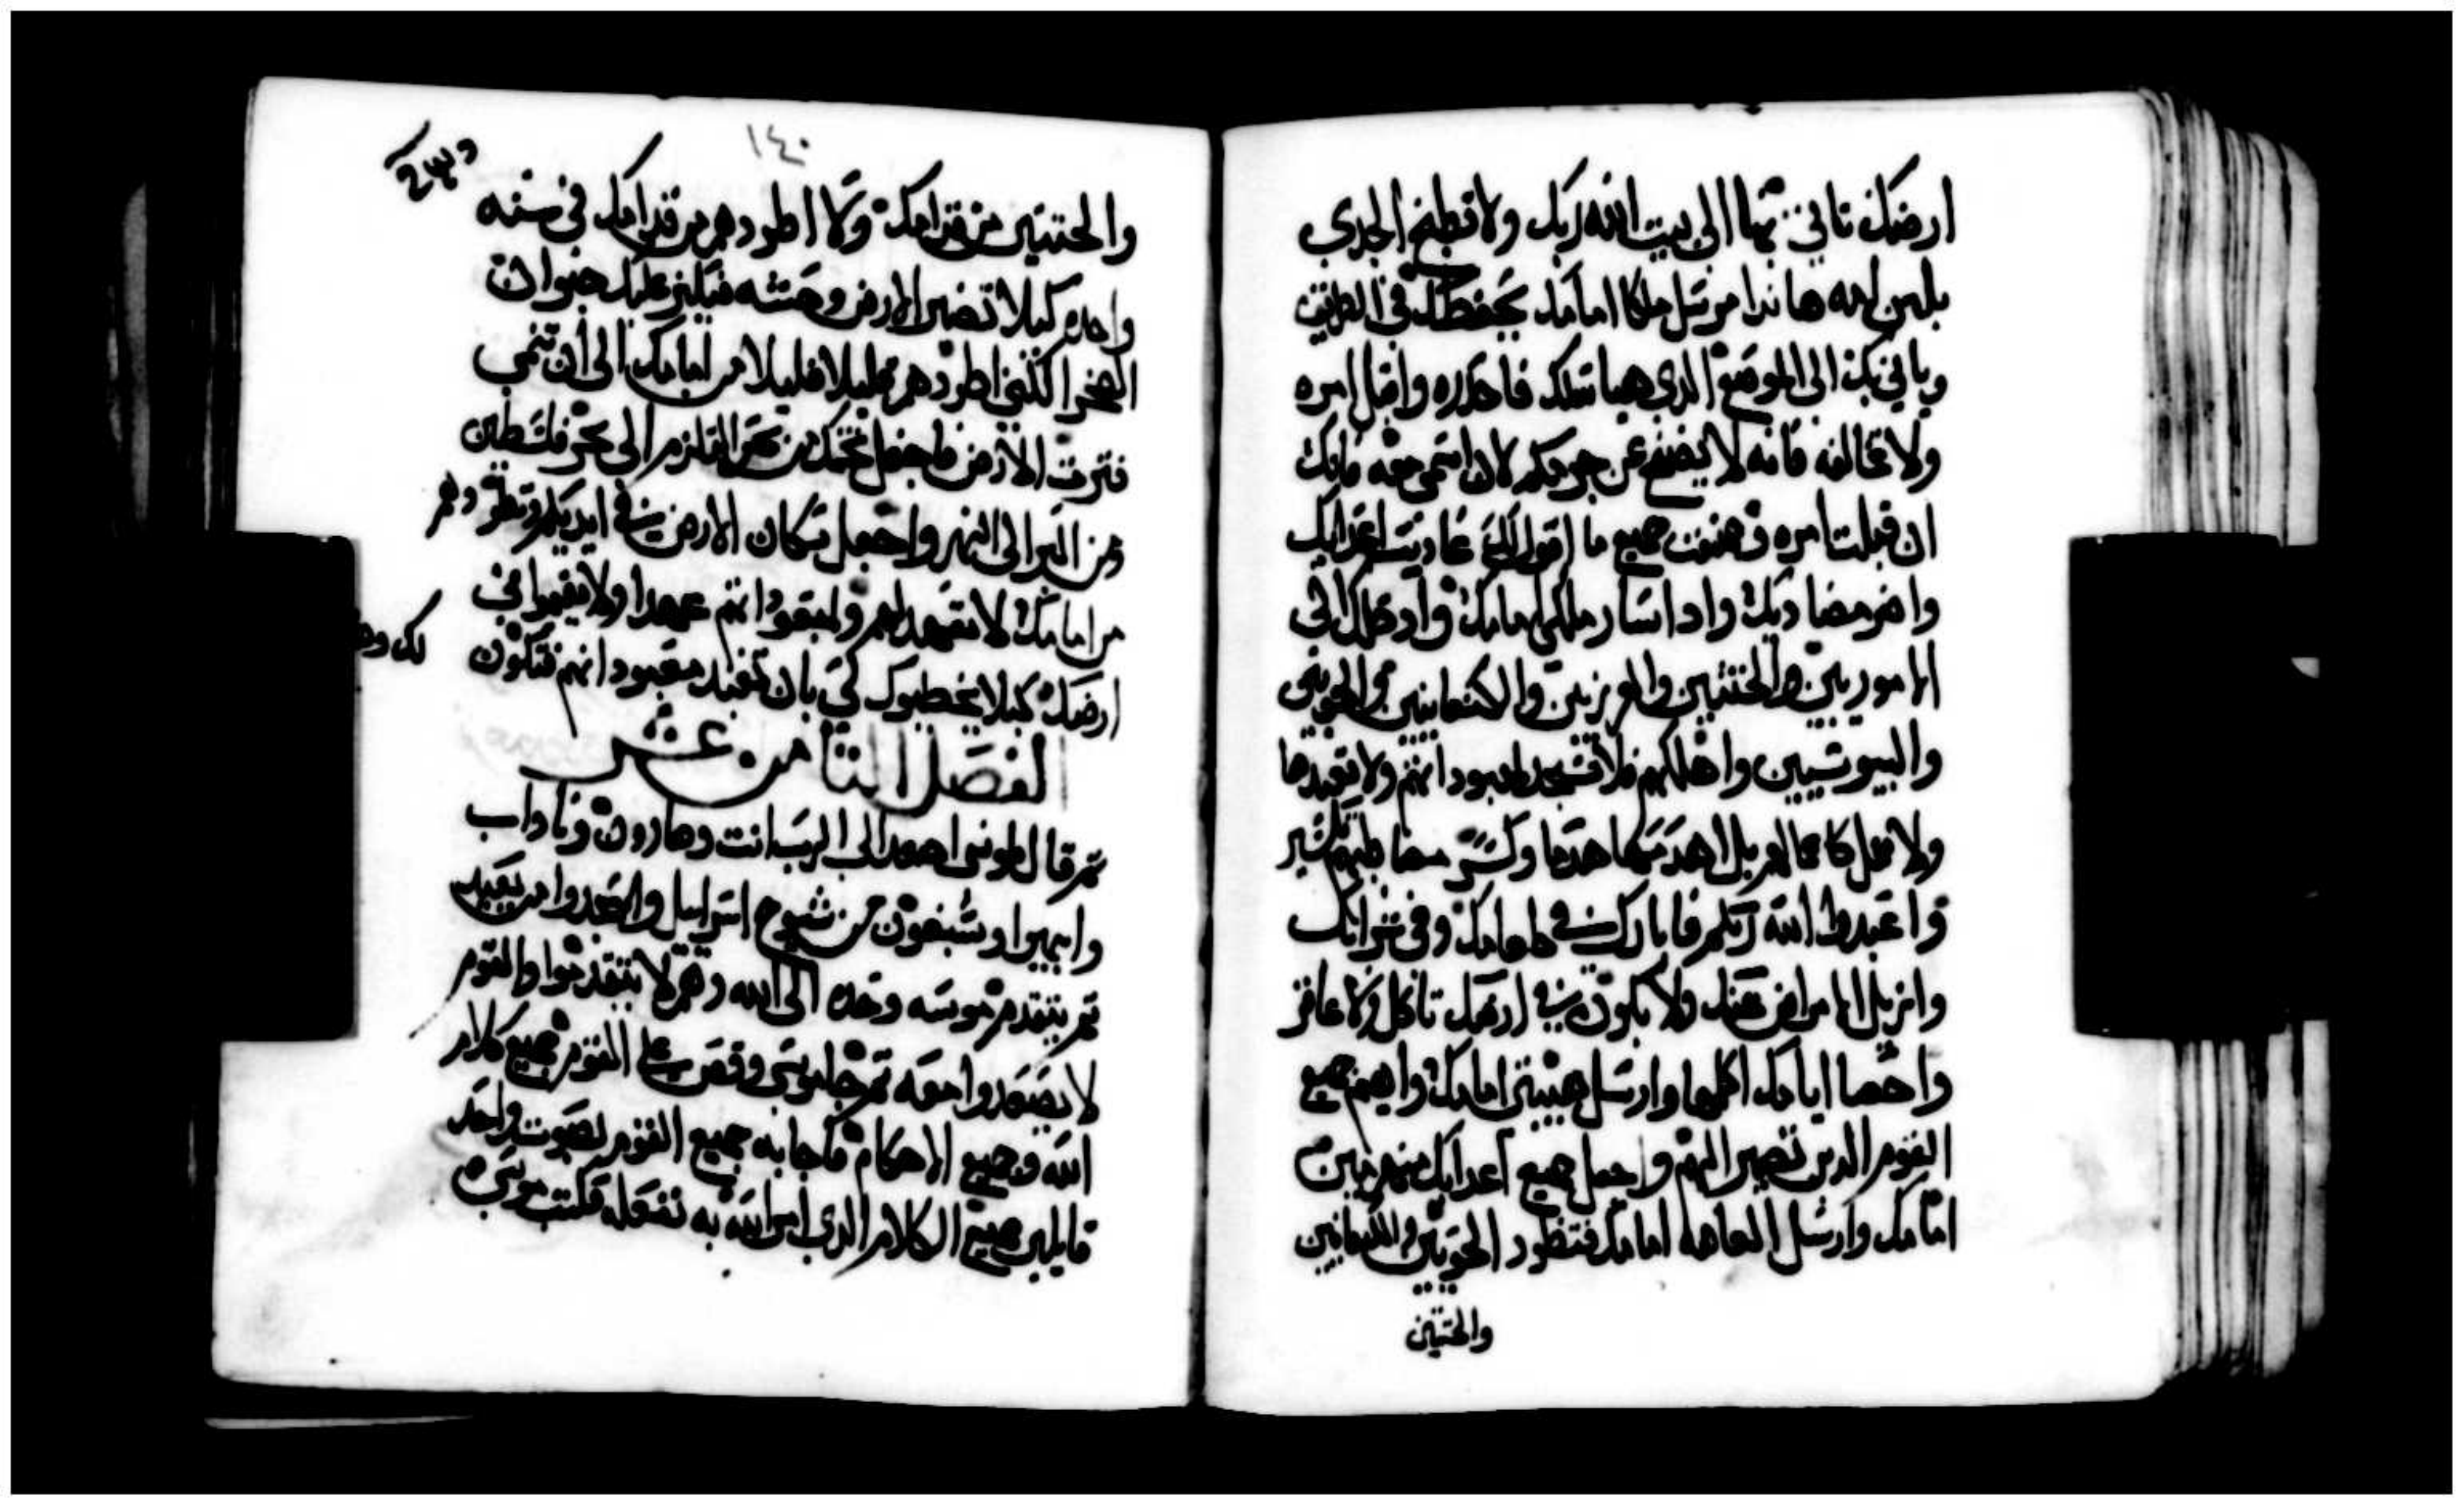 ارضك تاتي بها الى بيت الله ربك ولا تطبخ الجدي
بلبن امه هاندا مرسل ملاكا امامك يحفظك في الطريق
وياتي بك الى الموضع الدي هياته لك فاحدره واقبل امره
ولا تخالفه فانه لا يصفح عن جرمكم لان اسمي معه فانك
ان قبلت امره وصنعت جميع ما اقول لك عاديت اعدايك
واضر مضاديك وادا سار ملاكي امامك وادخلك الى
الاموريين والحتيين والفرزيين والكنعانيين والحويين
واليبوسيين واهلكهم فلا تسجد لمعبوداتهم ولا تعبدها
ولا تعمل كاعمالهم بل اهدمها هدما وكسر مصاطبهم تكسير
واعبدوا الله ربكم فابارك في طعامك وفي شرابك
وازيل الامراض عنك ولا يكون في ارضك تاكل ولا عاقر
واحصا ايامك اكملها وارسل هيبتي امامك واهيم جميع
القوم الدين تصير اليهم واجعل جميع اعدايك منهزمين
امامك وارسل العاهه امامك فتطرد الحويين والكنعانيين
والحتيين
١٤٠
والحتيين من قدامك ولا اطردهم من قدامك في سنه
واحده كيلا تصير الارض وحشه فيكثر عليك حيوان
الصحرا لكنني اطردهم قليلا قليلا من امامك الى ان تنمي
فترث الارض واجعل تخمك من بحر القلزم الى بحر فلسطين
ومن البر الى النهر واجعل سكان الارض في ايديكم وتطردهم
من امامك لا تعهد لهم ولمعبوداتهم عهدا ولا يقيموا في
ارضك كيلا يخطيوك في بان تعبد معبوداتهم فتكون
الفصل الثامن عشر
ثم قال لموسى اصعد الى الرب انت وهارون وناداب
وابيهوا وسبعون من شيوخ اسراييل واسجدوا من بعيد
ثم يتقدم موسه وحده الى الله وهم لا يتقدموا والقوم
لا يصعدوا معه ثم جا موسى وقص على القوم جميع كلام
الله وجميع الاحكام فاجابه جميع القوم بصوت واحد
قايلين جميع الكلام الدي امر الله به نفعله فكتب موسى